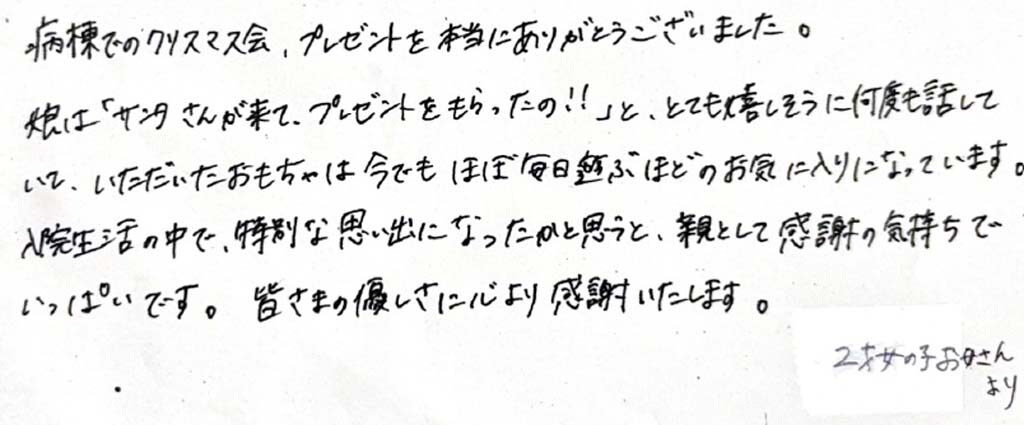 病棟でのクリスマス会、プレゼントを本当にありがとうございました。
娘は「サンタさんが来て、プレゼントをもらったの!!」と、とても嬉しそうに何度も話して
いて、いただいたおもちゃは今でもほぼ毎日遊ぶほどのお気に入りになっています。
入院生活の中で、特別な思い出になったかと思うと、親として感謝の気持ちで
いっぱいです。皆さまの優しさに心より感謝いたします。
2才女の子お母さん
より